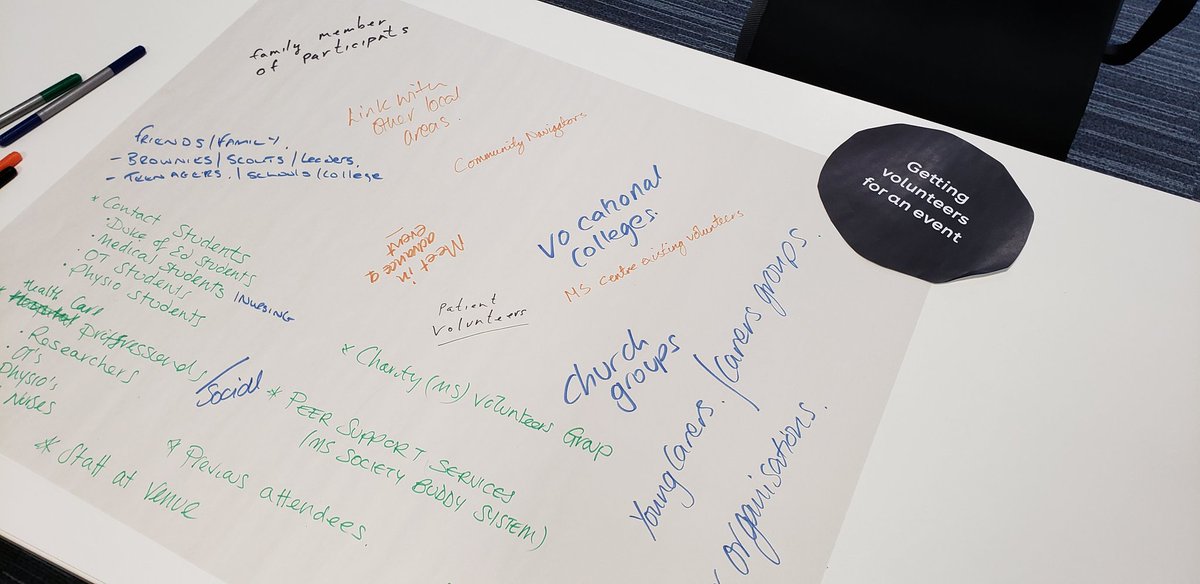 family member
of participants
Link with
other local
areas.
Community Navigators
FRIENDS/FAMILY.
- BROWNIES/SCOUTS/Leaders.
- TEENAGERS./SCHOOLS/College
* Contact Students
· Duke of Ed students
· Medical Students
· OT Students
· Physio Students
INURSING
Health Care
* Proffressionals
/Social
· Researchers
· OT's
Physio's
· Nurses
* Staff at Venue
* Previous attendees.
Meet in
advance of
event
Vocational
Colleges.
MS centre existing volunteers
Patient
Volunteers
* Charity (MS) Volunteers Group
* PEER SUPPORT SERVICES
(MS SOCIETY BUDDY SYSTEM)
Church
groups
Young Carers. /Carers groups.
organisations.
Getting
volunteers
for an event